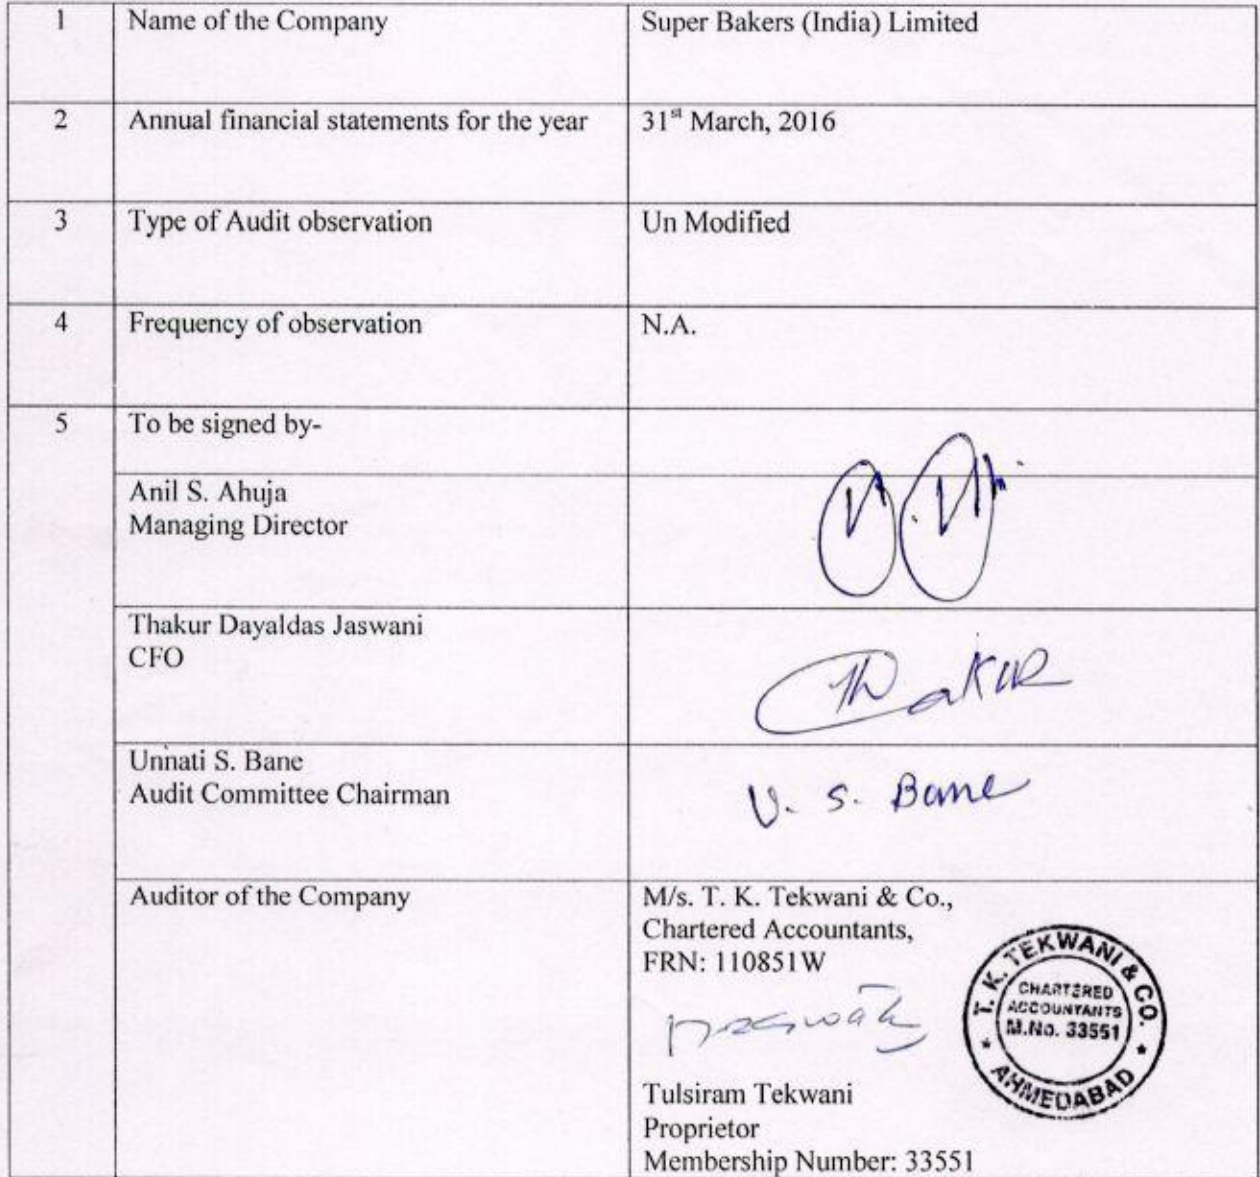 1 Name of the Company Super Bakers (India) Limited
2 Annual financial statements for the year 31st March, 2016
3 Type of Audit observation Un Modified
4 Frequency of observation N.A.
5 To be signed by-
Anil S. Ahuja
Managing Director
Thakur Dayaldas Jaswani
CFO
Thakur
Unnati S. Bane
Audit Committee Chairman
U. S. Bane
Auditor of the Company
M/s. T. K. Tekwani & Co.,
Chartered Accountants,
FRN: 110851W
T. K. TEKWANI & CO.
CHARTERED
ACCOUNTANTS
M.No. 33551
* AHMEDABAD *
Tulsiram Tekwani
Proprietor
Membership Number: 33551